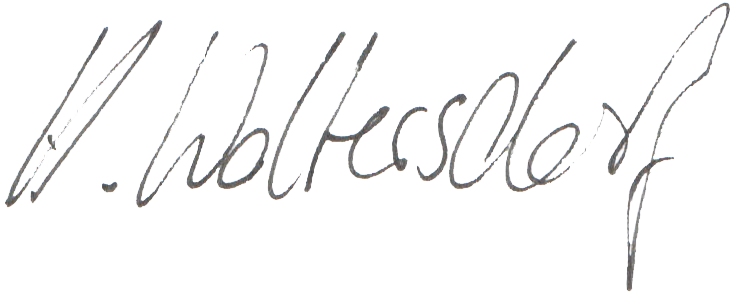 H. Woltersdorf